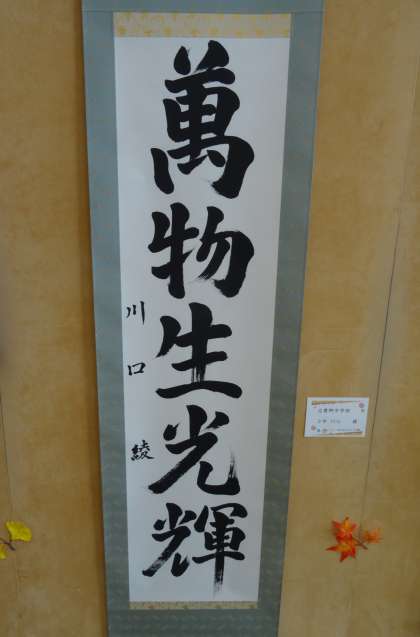 萬物生光輝
川口綾